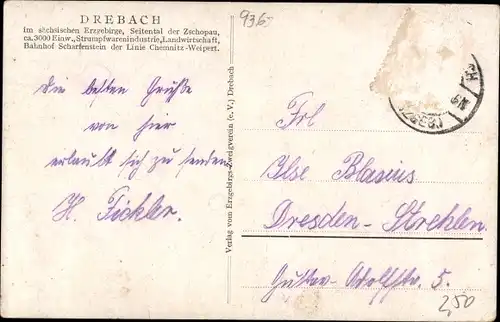 DREBACH
im sächsischen Erzgebirge, Seitental der Zschopau,
ca. 3000 Einw., Strumpfwarenindustrie, Landwirtschaft,
Bahnhof Scharfenstein der Linie Chemnitz-Weipert.
Die besten Grüße
von hier
erlaubt sich zu senden
H. Fickler.
Verlag vom Erzgebirgs-Zweigverein (e. V.) Drebach
Frl
Ilse Blasius
Dresden-Strehlen.
Gustav-Adolfstr. 5.
2,50